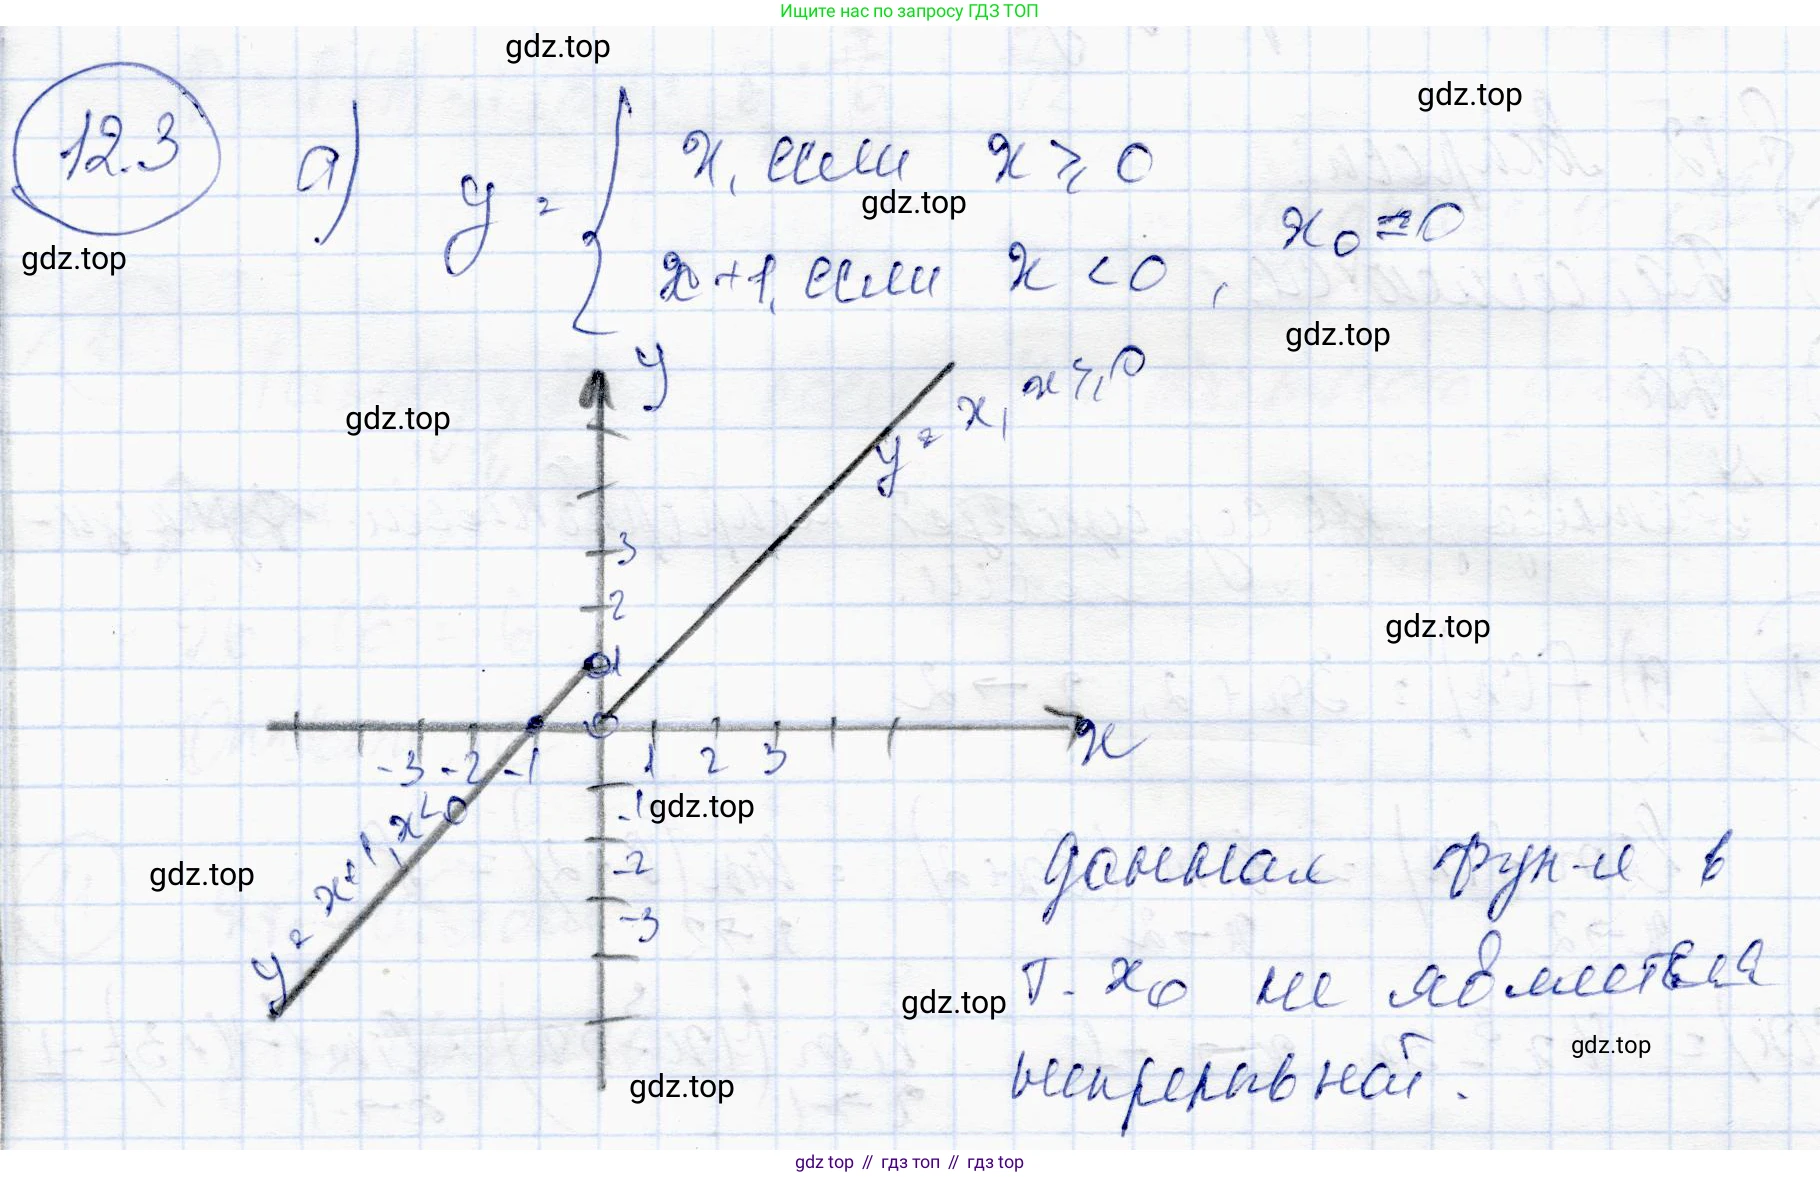 Ищите нас по запросу ГДЗ ТОП
gdz.top
gdz.top
12.3 а) y = { x, если x ⩾ 0
gdz.top
x+1, если x < 0, x₀ = 0
gdz.top
gdz.top
y
y = x, x ⩾ 0
gdz.top
3
2
1
gdz.top
-3 -2 -1 0 1 2 3 x
-1
gdz.top
-2
-3
y = x+1, x<0
gdz.top
Данная фун-я в
т. x₀ не является
gdz.top
непрерывной.
gdz.top
gdz.top
gdz top // гдз топ // gdz.top